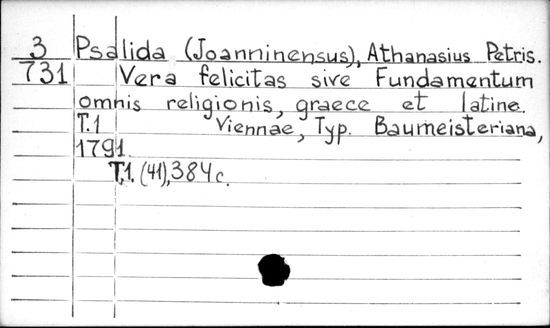 3 Psalida (Joanninensus), Athanasius Petris.
731 Vera felicitas sive Fundamentum
omnis religionis, graece et latine.
T.1 Viennae, Typ. Baumeisteriana,
1791.
T.1. (41), 384 c.